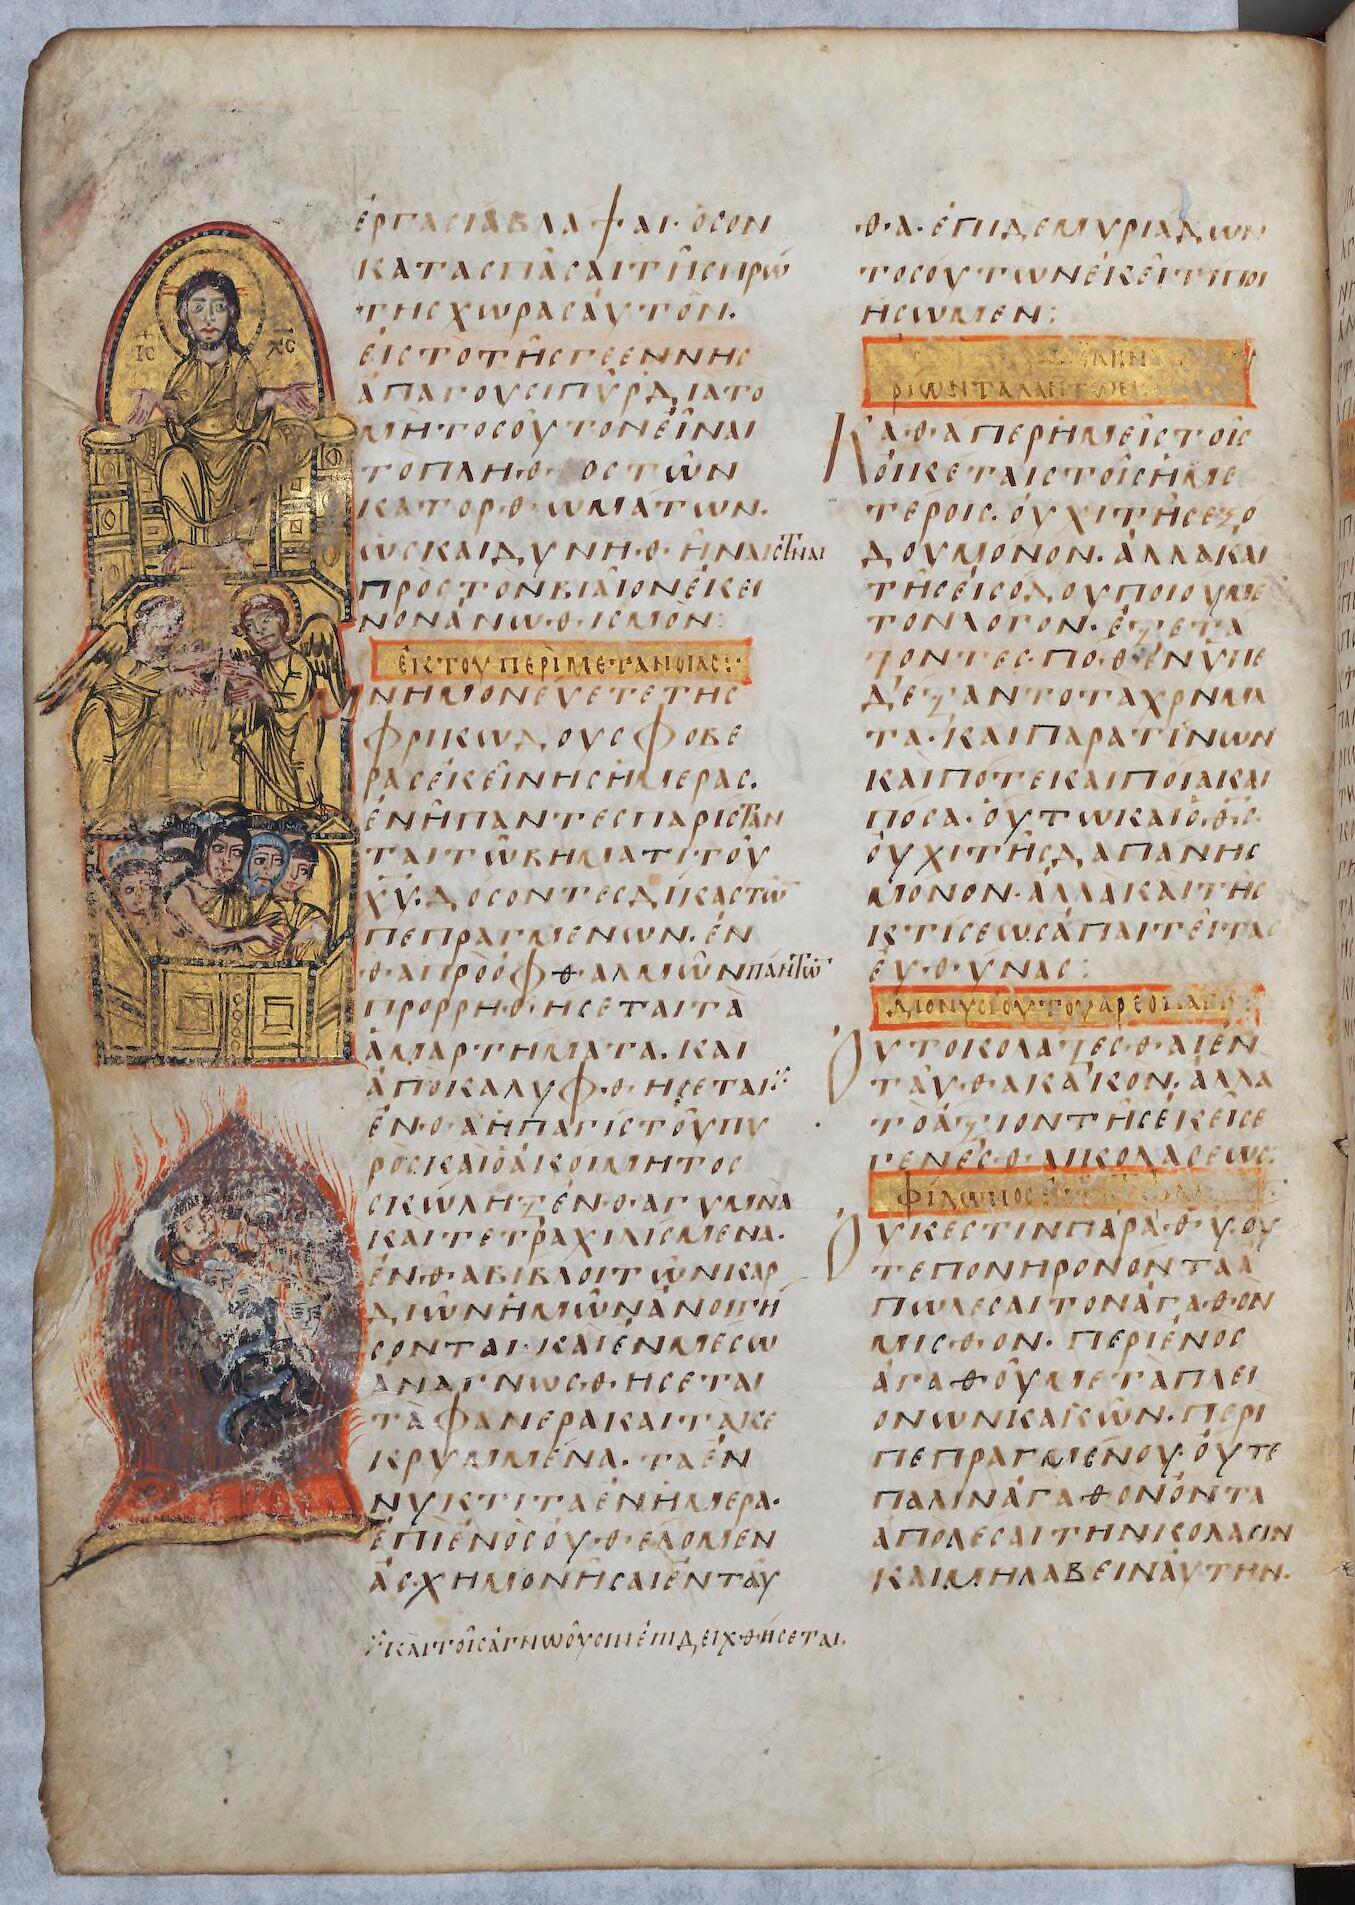 ἐργασία βλάψαι· ὅσον
κατασπᾶσαι τῆς πρώ
της χώρας αὐτόν.
εἰς τὸ τῆς γεέννης
ἀπάγουσι πῦρ, διὰ τὸ
μὴ τοσοῦτον εἶναι
τὸ πλῆθος τῶν
κατορθωμάτων.
ὡς καὶ δυνηθῆναι στῆναι
πρὸς τὸν βίαιον ἐκεῖ
νον ἀνωθισμόν:
ἐκ τοῦ περὶ μετανοίας:
μνημονεύετε τῆς
φρικώδους φοβε
ρᾶς ἐκείνης ἡμέρας.
ἐν ᾗ πάντες παρίσταν
ται τῷ βήματι τοῦ
χυ. δόσοντες δίκας τῶν
πεπραγμένων. ἐν
θα πρὸ ὀφθαλμῶν πάντων
προρρηθήσεται τὰ
ἁμαρτήματα. καὶ
ἀποκαλυφθήσεται
ἔνθα ἡ παγὶς τοῦ πυ
ρὸς καὶ ὁ ἀκοίμητος
σκώληξ ἔνθα γυμνὰ
καὶ τετραχιλισμένα.
ἔνθα βίβλοι τῶν καρ
διῶν ἡμῶν ἀνοιγή
σονται. καὶ ἐν μέσω
ἀναγνωσθήσεται
τὰ φανερὰ καὶ τὰ κε
κρυμμένα. τὰ ἐν
νυκτὶ τὰ ἐν ἡμέρα.
ἐπὶ ἑνὸς οὐ θέλομεν
ἀσχημονῆσαι ἐνταῦ
καὶ τοῖς ἀγνωοῦσιν ἐπιδειχθήσεται.
θα. ἐπὶ δὲ μυριάδων
τοσούτων ἐκεῖ τί ποι
ήσωμεν:
ρίων ταλάντων
Καθάπερ ἡμεῖς τοῖς
οἰκέταις τοῖς ἡμε
τέροις. οὐχὶ τῆς ἐξό
δου μόνον. ἀλλὰ καὶ
τῆς εἰσόδου ποιούμε
τον λόγον. ἐξετά
ζοντες. πόθεν ὑπε
δέξαντο τὰ χρήμα
τα. καὶ παρὰ τίνων
καὶ πότε καὶ ποία καὶ
πόσα. οὕτω καὶ ὁ θς.
οὐχὶ τῆς δαπάνης
μόνον. ἀλλὰ καὶ τῆς
κτίσεως ἀπαιτεῖται
εὐθύνας:
Διονυσίου τοῦ ἀρεοπαγι
Οὐ τὸ κολάζεσθαι ἐν
ταῦθα κακόν. ἀλλὰ
τὸ ἄξιον τῆς ἐκεῖσε
γενέσθαι κολάσεως:
Φίλωνος
Οὐκ ἔστιν παρὰ θυ. οὔ
τε πονηρὸν ὄντα ἀ
πωλέσαι τὸν ἀγαθὸν
μισθόν. περὶ ἑνὸς
ἀγαθοῦ μετὰ πλει
όνων κακῶν. περὶ
πεπραγμένου. οὔτε
πάλιν ἀγαθὸν ὄντα
ἀπολέσαι τὴν κόλασιν
καὶ μὴ λαβεῖν αὐτήν.
ΙϹ ΧϹ